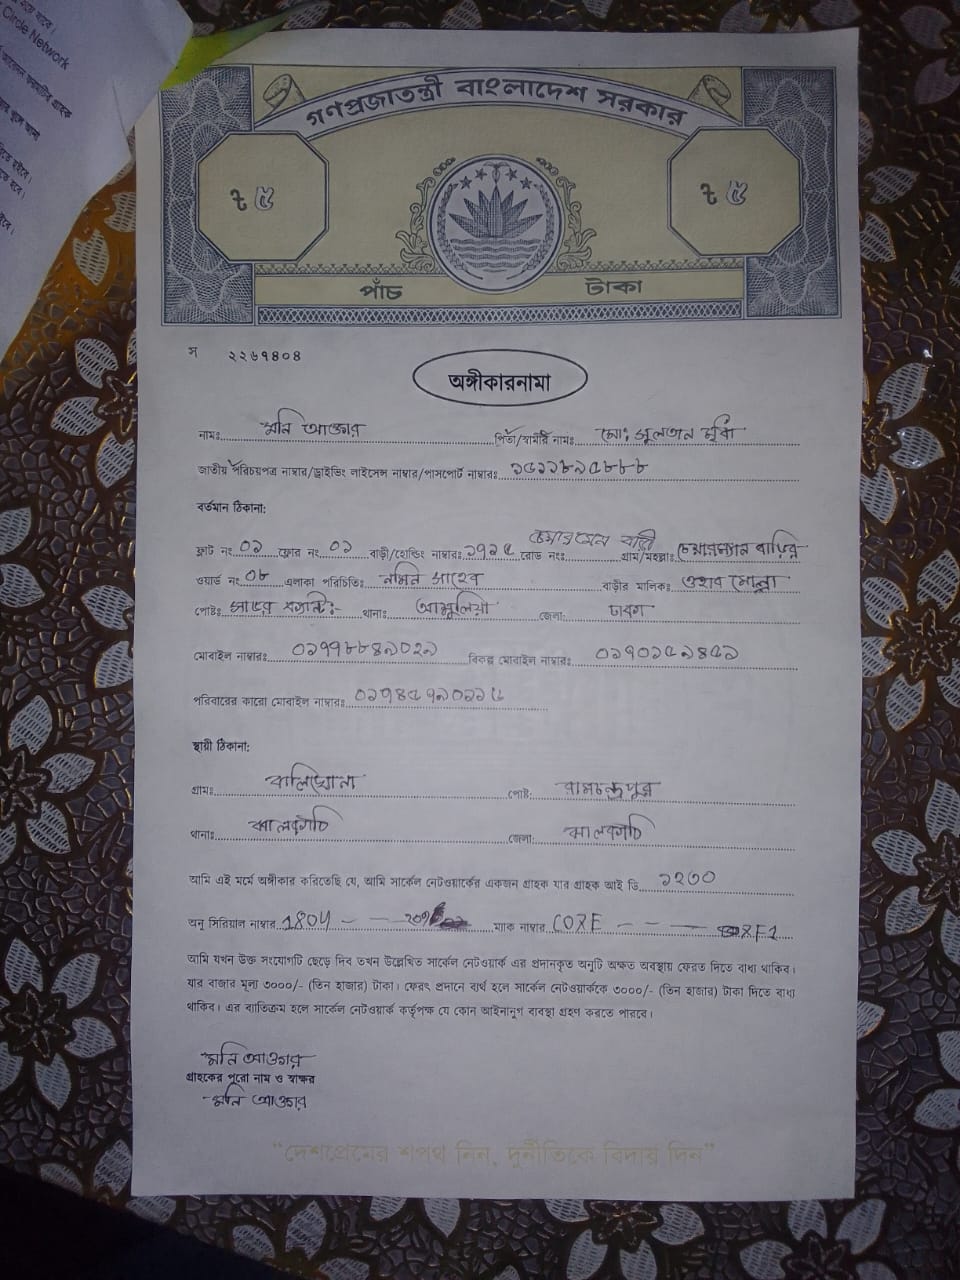 Circle Network
গণপ্রজাতন্ত্রী বাংলাদেশ সরকার
৳ ৫ ৳ ৫
পাঁচ টাকা
স ২২৬৭৪০৪
অঙ্গীকারনামা
নামঃ মনি আক্তার পিতা/স্বামীর নামঃ মোঃ সুলতান মৃধা
জাতীয় পরিচয়পত্র নাম্বার/ড্রাইভিং লাইসেন্স নাম্বার/পাসপোর্ট নাম্বারঃ
বর্তমান ঠিকানা:
ফ্লাট নং ০১ ফ্লোর নং ০১ বাড়ী/হোল্ডিং নাম্বারঃ রোড নংঃ গ্রাম/মহল্লাঃ চেয়ারম্যান বাড়ির
ওয়ার্ড নং ০৮ এলাকা পরিচিতিঃ বাড়ীর মালিকঃ ওহাব মোল্লা
পোষ্টঃ থানাঃ আশুলিয়া জেলা: ঢাকা
মোবাইল নাম্বারঃ ০১৭৭৮৮৪৯০২৯ বিকল্প মোবাইল নাম্বারঃ
পরিবারের কারো মোবাইল নাম্বারঃ
স্থায়ী ঠিকানা:
গ্রামঃ পোষ্ট: রামচন্দ্রপুর
থানাঃ ঝালকাঠি জেলা: ঝালকাঠি
আমি এই মর্মে অঙ্গীকার করিতেছি যে, আমি সার্কেল নেটওয়ার্কের একজন গ্রাহক যার গ্রাহক আই ডি ১২৩০
অনু সিরিয়াল নাম্বার ম্যাক নাম্বার
আমি যখন উক্ত সংযোগটি ছেড়ে দিব তখন উল্লেখিত সার্কেল নেটওয়ার্ক এর প্রদানকৃত অনুটি অক্ষত অবস্থায় ফেরত দিতে বাধ্য থাকিব।
যার বাজার মূল্য ৩০০০/- (তিন হাজার) টাকা। ফেরৎ প্রদানে ব্যর্থ হলে সার্কেল নেটওয়ার্ককে ৩০০০/- (তিন হাজার) টাকা দিতে বাধ্য
থাকিব। এর ব্যতিক্রম হলে সার্কেল নেটওয়ার্ক কর্তৃপক্ষ যে কোন আইনানুগ ব্যবস্থা গ্রহণ করতে পারবে।
মনি আক্তার
গ্রাহকের পুরো নাম ও স্বাক্ষর
মনি আক্তার
"দেশপ্রেমের শপথ নিন, দুর্নীতিকে বিদায় দিন"